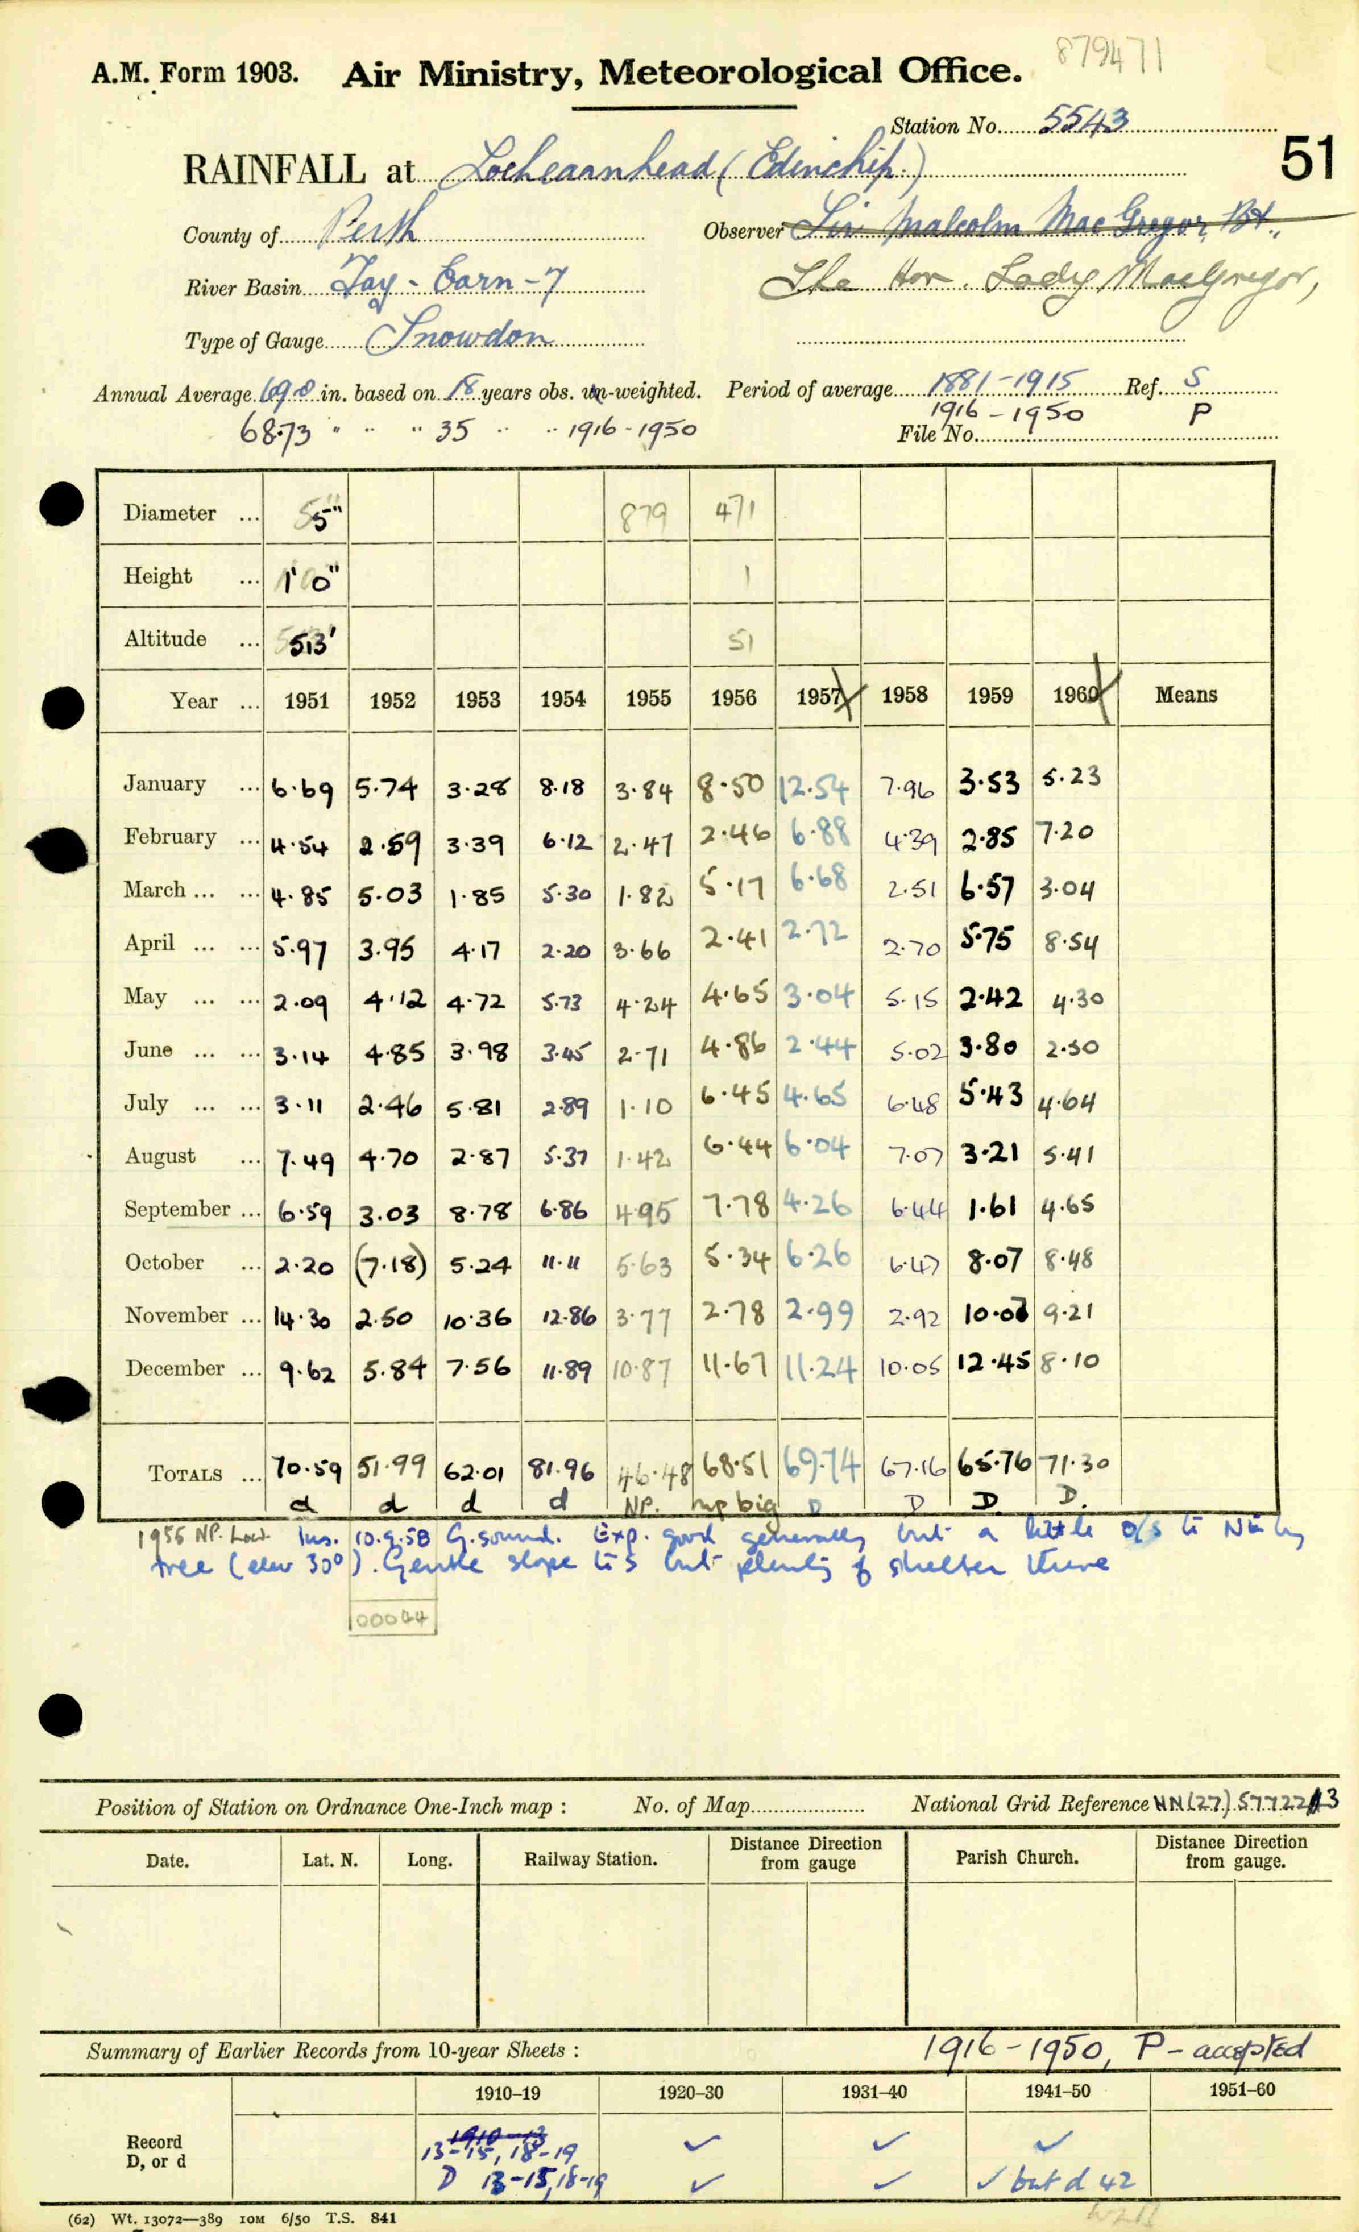 879471
A.M. Form 1903. Air Ministry, Meteorological Office.
Station No. 5543
51
RAINFALL at Lochearnhead (Edinchip.)
County of Perth Observer Sir Malcolm MacGregor, Bt.,
River Basin Tay - Earn - 7 The Hon. Lady MacGregor,
Type of Gauge Snowdon
Annual Average 69.8 in. based on 18 years obs. un-weighted. Period of average 1881-1915 Ref. S
68.73 " " " 35 " " 1916-1950 1916-1950 P
File No.
Diameter ... 5" 879 471
Height ... 1' 0" 1
Altitude ... 513' 51
Year ... 1951 1952 1953 1954 1955 1956 1957 1958 1959 1960 Means
January ... 6.69 5.74 3.28 8.18 3.84 8.50 12.54 7.96 3.53 5.23
February ... 4.54 2.59 3.39 6.12 2.47 2.46 6.88 4.39 2.85 7.20
March ... ... 4.85 5.03 1.85 5.30 1.82 5.17 6.68 2.51 6.57 3.04
April ... ... 5.97 3.95 4.17 2.20 3.66 2.41 2.72 2.70 5.75 8.54
May ... ... 2.09 4.12 4.72 5.73 4.24 4.65 3.04 5.15 2.42 4.30
June ... ... 3.14 4.85 3.98 3.45 2.71 4.86 2.44 5.02 3.80 2.50
July ... ... 3.11 2.46 5.81 2.89 1.10 6.45 4.65 6.48 5.43 4.64
August ... 7.49 4.70 2.87 5.37 1.42 6.44 6.04 7.07 3.21 5.41
September ... 6.59 3.03 8.78 6.86 4.95 7.78 4.26 6.44 1.61 4.65
October ... 2.20 (7.18) 5.24 11.11 5.63 5.34 6.26 6.47 8.07 8.48
November ... 14.30 2.50 10.36 12.86 3.77 2.78 2.99 2.92 10.07 9.21
December ... 9.62 5.84 7.56 11.89 10.87 11.67 11.24 10.05 12.45 8.10
TOTALS ... 70.59 51.99 62.01 81.96 46.48 68.51 69.74 67.16 65.76 71.30
d d d d NP. np big D D D. D.
1955 NP. Low. Ins. 10.9.58 G. sound. Exp. good generally but a little o/s to NE by
tree (elev 30°). Gentle slope to S but plenty of shelter there
00044
Position of Station on Ordnance One-Inch map : No. of Map National Grid Reference NN(27) 577221
Date. Lat. N. Long. Railway Station. Distance Direction from gauge Parish Church. Distance Direction from gauge.
Summary of Earlier Records from 10-year Sheets : 1916-1950, P - accepted
1910–19 1920–30 1931–40 1941–50 1951–60
Record 1910-13 ✓ ✓ ✓
13-15, 18-19
D, or d D 13-15, 18-19 ✓ ✓ ✓ but d 42
(62) Wt. 13072—389 10M 6/50 T.S. 841